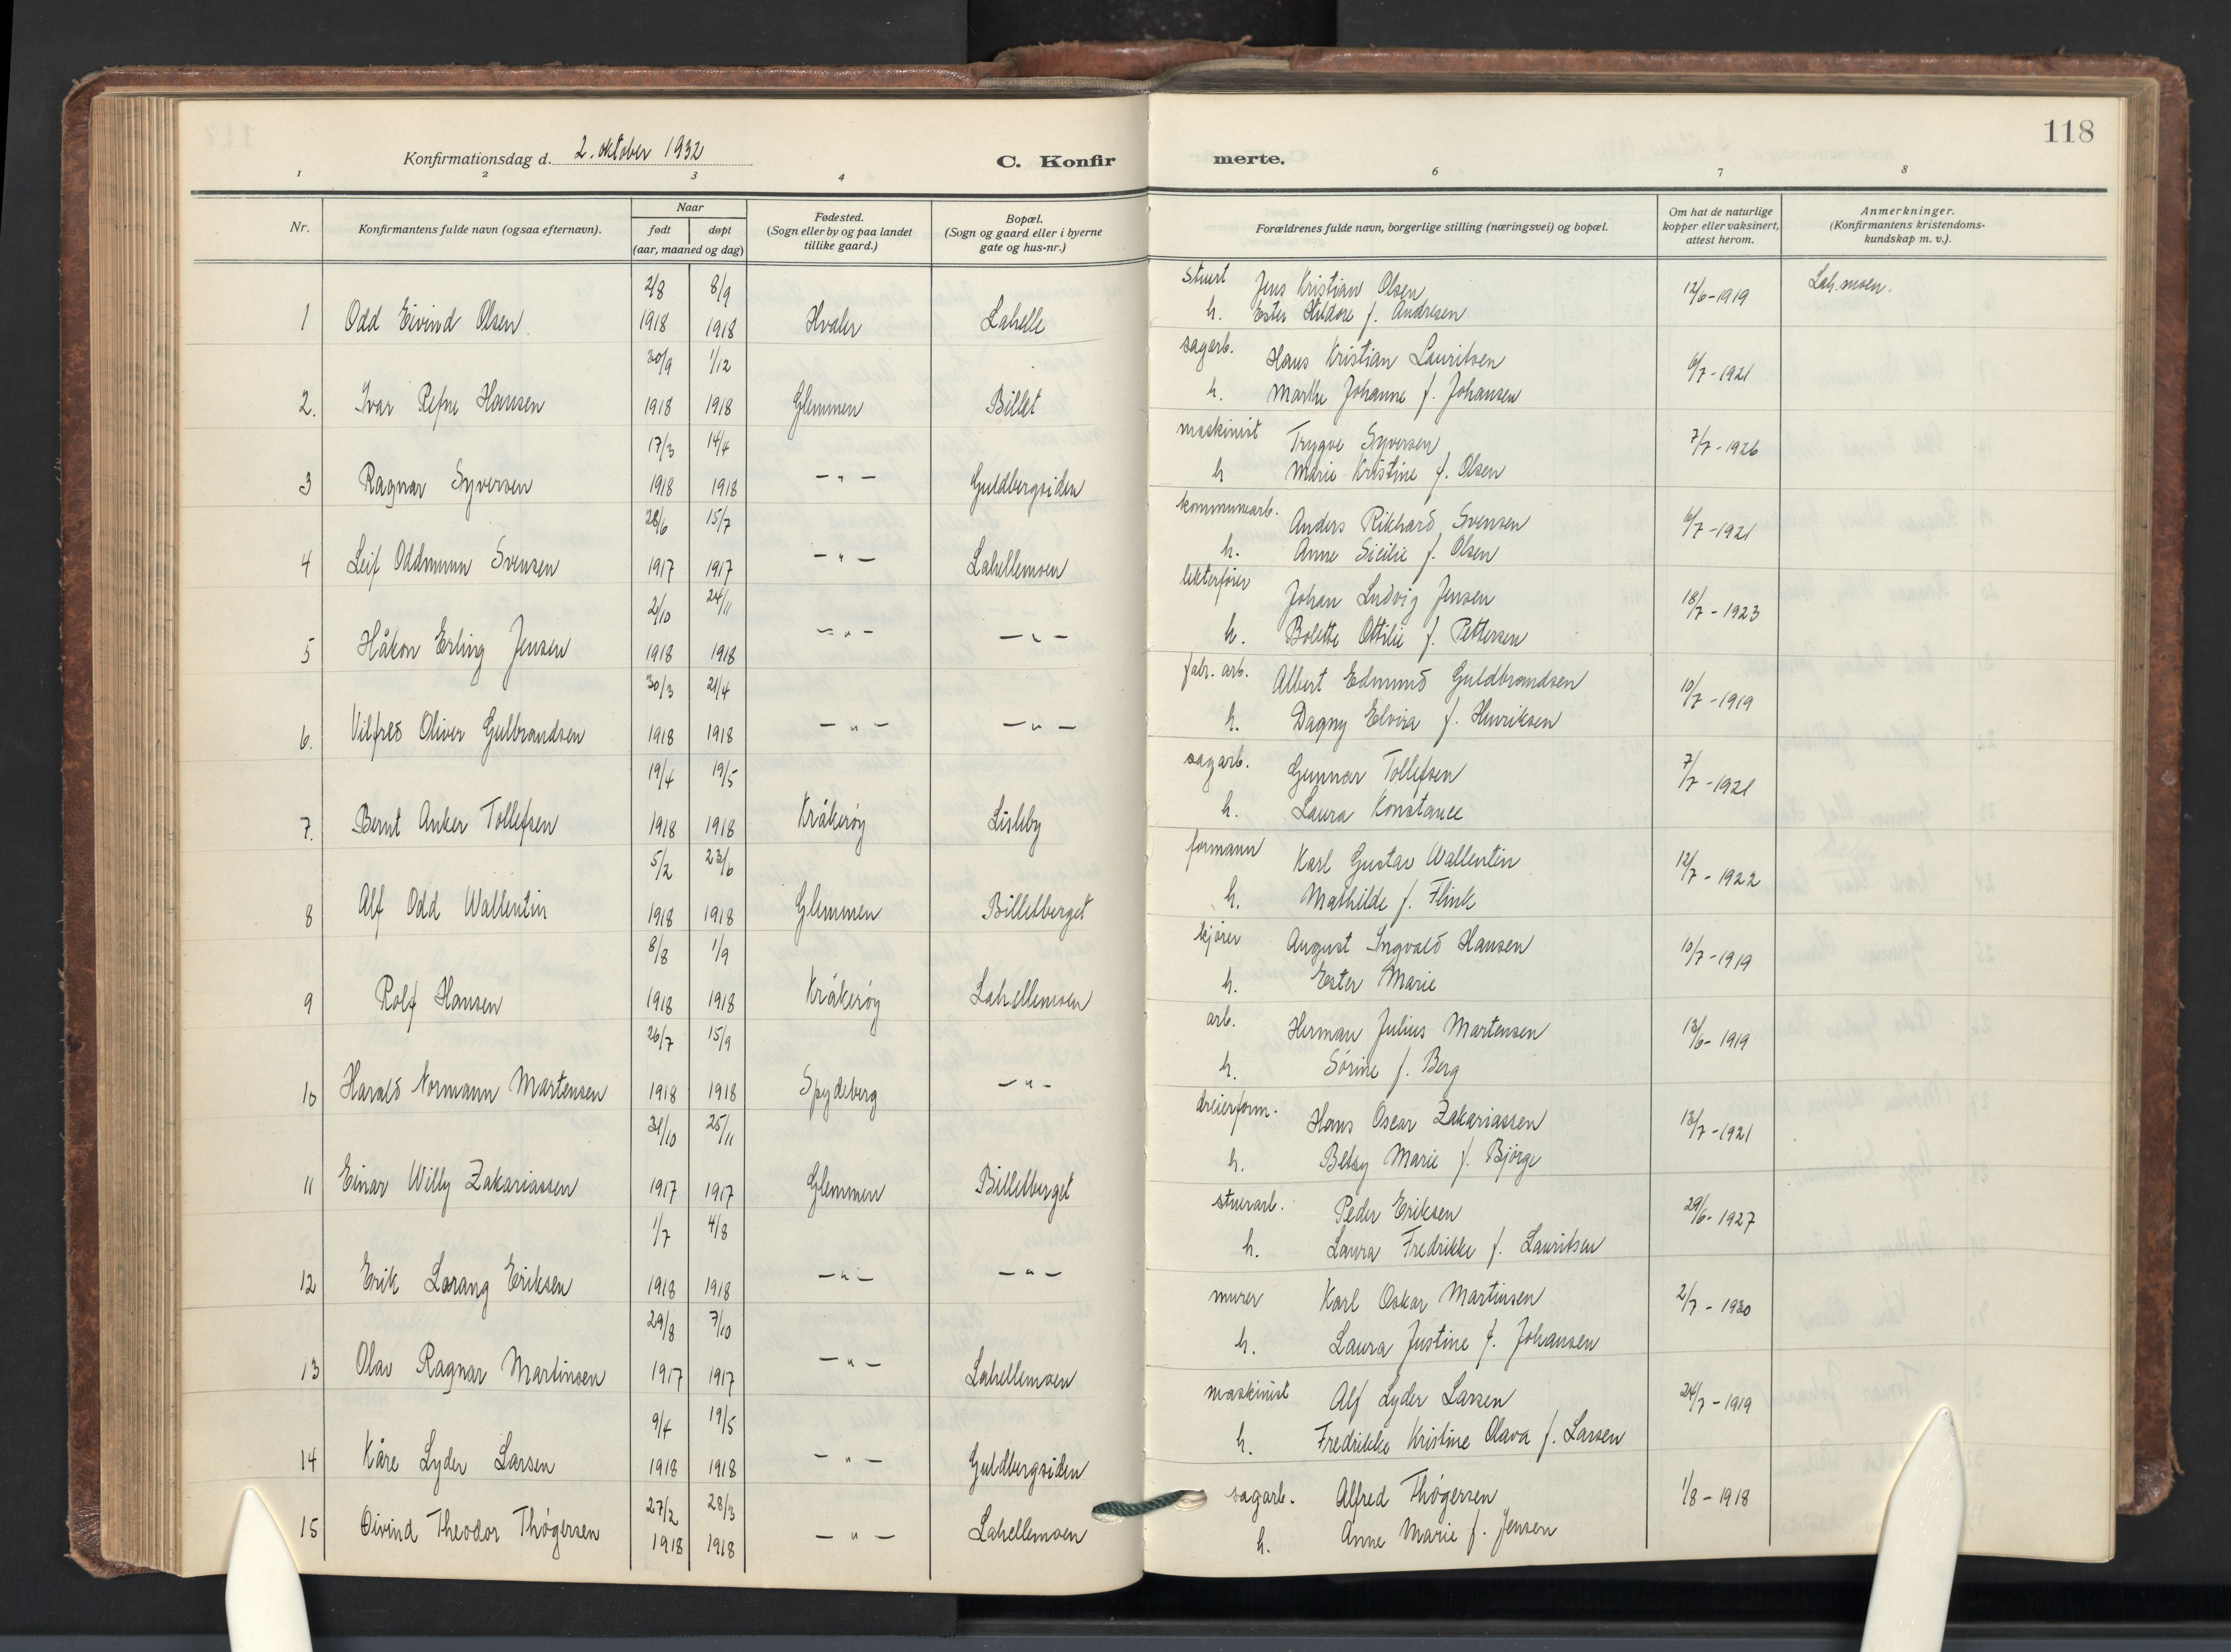 118
Konfirmationsdag d. 2. oktober 1932
C. Konfirmerte.
1 2 3 4 6 7 8
Nr.
Konfirmantens fulde navn (ogsaa efternavn).
Naar
født døpt
(aar, maaned og dag)
Fødested.
(Sogn eller by og paa landet
tillike gaard.)
Bopæl.
(Sogn og gaard eller i byerne
gate og hus-nr.)
Forældrenes fulde navn, borgerlige stilling (næringsvei) og bopæl.
Om hat de naturlige
kopper eller vaksinert,
attest herom.
Anmerkninger.
(Konfirmantens kristendoms-
kundskap m. v.).
2/8 8/9 stuert Jens Kristian Olsen 12/6-1919 Lah.moen.
1 Odd Eivind Olsen 1918 1918 Hvaler Lahelle h. Ester Hildore f. Andresen
30/9 1/12 sagarb. Hans Kristian Lauritsen 6/7-1921
2. Ivar Refne Hansen 1918 1918 Glemmen Billet h. Marthe Johanne f. Johansen
17/3 14/4 maskinist Trygve Syversen 7/7-1926
3 Ragnar Syversen 1918 1918 - " - Guldbergsiden h Marie Kristine f. Olsen
28/6 15/7 kommunearb. Anders Rikhard Svensen 6/7-1921
4 Leif Oddmunn Svensen 1917 1917 - " - Lahellemoen h. Anne Sicilie f. Olsen
2/10 24/11 lekterfører Johan Ludvig Jensen 18/7-1923
5 Håkon Erling Jensen 1918 1918 - " - - " - h. Bolette Ottilie f. Pettersen
30/3 21/4 fabr. arb. Albert Edmund Guldbrandsen 10/7-1919
6. Vilfred Oliver Gulbrandsen 1918 1918 - " - - " - h. Dagny Elvira f. Henriksen
19/4 19/5 sagarb. Gunnar Tollefsen 7/7-1921
7. Bernt Anker Tollefsen 1918 1918 Kråkerøy Lisleby h. Laura Konstance
5/2 23/6 formann Karl Gustav Wallentin 12/7-1922
8 Alf Odd Wallentin 1918 1918 Glemmen Billetberget h. Mathilde f. Flink
8/8 1/9 kjører August Ingvald Hansen 10/7-1919
9 Rolf Hansen 1918 1918 Kråkerøy Lahellemoen h. Ester Marie
26/7 15/9 arb. Herman Julius Martensen 13/6-1919
10 Harald Normann Martensen 1918 1918 Spydeberg - " - h. Sórine f. Berg
31/10 25/11 dreierform. Hans Oscar Zakariassen 13/7-1921
11 Einar Willy Zakariassen 1917 1917 Glemmen Billetberget h. Betsy Marie f. Bjørge
1/7 4/8 stuerarb. Peder Eriksen 29/6-1927
12 Erik Larang Eriksen 1918 1918 - " - - " - h. Laura Fredrikke f. Lauritsen
29/8 7/10 murer Karl Oskar Martinsen 2/7-1930
13 Olav Ragnar Martinsen 1917 1917 - " - Lahellemoen h. Laura Justine f. Johansen
9/4 19/5 maskinist Alf Lyder Larsen 24/7-1919
14 Kåre Lyder Larsen 1918 1918 - " - Guldbergsiden h. Fredrikke Kristine Olava f. Larsen
27/2 28/3 sagarb. Alfred Thøgersen 1/8-1918
15 Øivind Theodor Thøgersen 1918 1918 - " - Lahellemoen h. Anne Marie f. Jensen